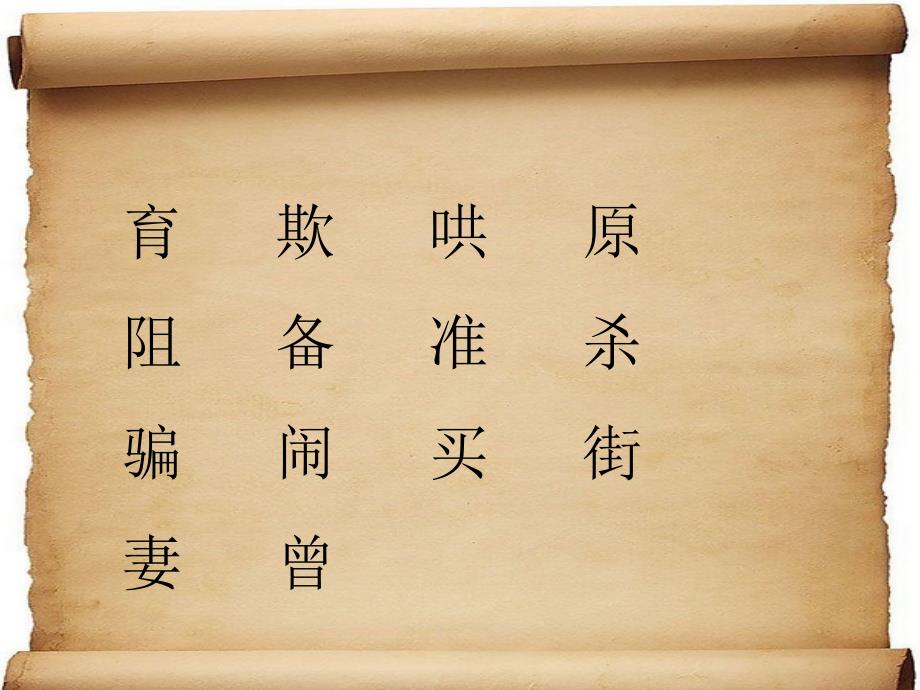 育 欺 哄 原
阻 备 准 杀
骗 闹 买 街
妻 曾